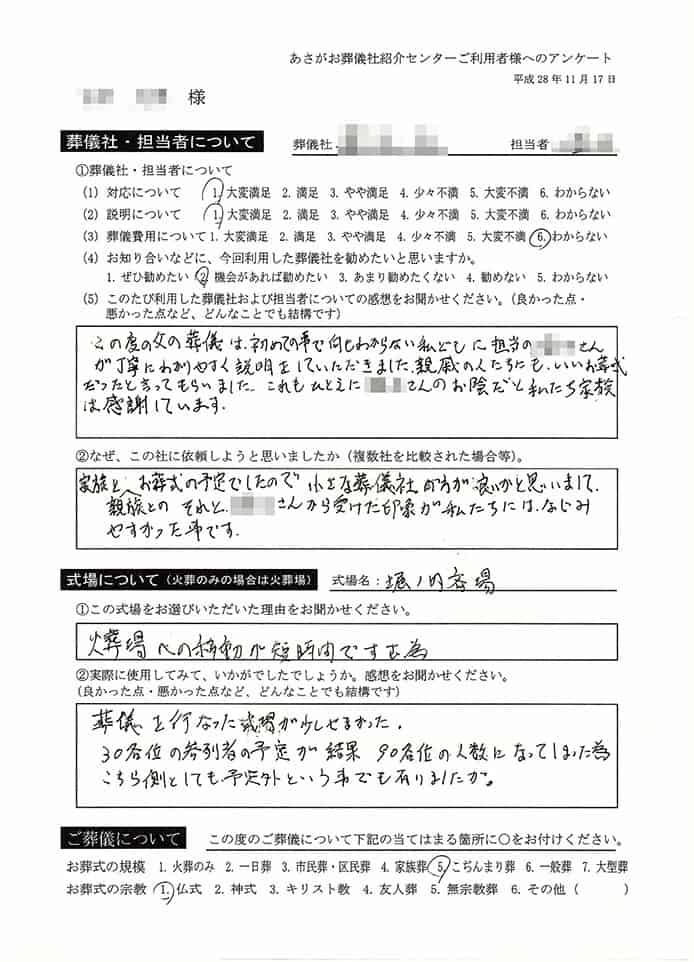 あさがお葬儀社紹介センターご利用者様へのアンケート
平成28年11月17日
様
葬儀社・担当者について 葬儀社 担当者
①葬儀社・担当者について
(1) 対応について 1. 大変満足 2. 満足 3. やや満足 4. 少々不満 5. 大変不満 6. わからない
(2) 説明について 1. 大変満足 2. 満足 3. やや満足 4. 少々不満 5. 大変不満 6. わからない
(3) 葬儀費用について 1. 大変満足 2. 満足 3. やや満足 4. 少々不満 5. 大変不満 6. わからない
(4) お知り合いなどに、今回利用した葬儀社を勧めたいと思いますか。
1. ぜひ勧めたい 2. 機会があれば勧めたい 3. あまり勧めたくない 4. 勧めない 5. わからない
(5) このたび利用した葬儀社および担当者についての感想をお聞かせください。(良かった点・
悪かった点など、どんなことでも結構です)
この度の父の葬儀は、初めての事で何もわからない私どもに担当の さん
が丁寧にわかりやすく説明をしていただきました。親戚の人たちにも、いいお葬式
だったと言ってもらいました。これもひとえに さんのお陰だと私たち家族
は感謝しています。
②なぜ、この社に依頼しようと思いましたか(複数社を比較された場合等)。
家族と、お葬式の予定でしたので 小さな葬儀社の方が良いかと思いまして、
親族との それと、 さんから受けた印象が私たちには、なじみ
やすかった事です。
式場について(火葬のみの場合は火葬場) 式場名:堀ノ内斎場
①この式場をお選びいただいた理由をお聞かせください。
火葬場への移動が短時間ですむ為
②実際に使用してみて、いかがでしたでしょうか。感想をお聞かせください。
(良かった点・悪かった点など、どんなことでも結構です)
葬儀を行なった式場が少しせまかった。
30名位の参列者の予定が結果 90名位の人数になってしまった為
こちら側としても予定外という事でも有りましたが。
ご葬儀について この度のご葬儀について下記の当てはまる箇所に○をお付けください。
お葬式の規模 1. 火葬のみ 2. 一日葬 3. 市民葬・区民葬 4. 家族葬 5. こぢんまり葬 6. 一般葬 7. 大型葬
お葬式の宗教 1. 仏式 2. 神式 3. キリスト教 4. 友人葬 5. 無宗教葬 6. その他 ( )